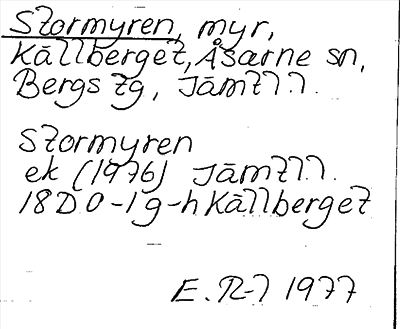 Stormyren, myr,
Källberget, Åsarne sn,
Bergs tg, Jämtl.
Stormyren
ek (1976) Jämtl.
18D 0-1g-h Källberget
E. R-l 1977